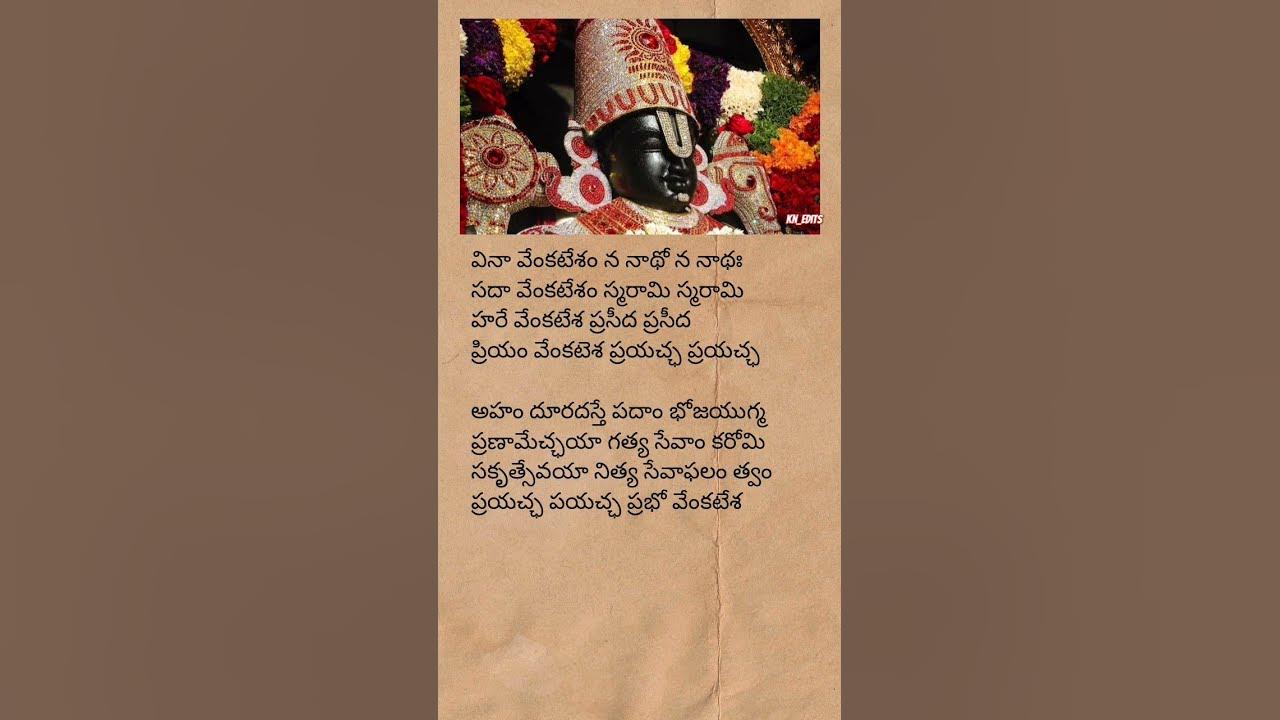 KN_EDITS
వినా వేంకటేశం న నాథో న నాథః
సదా వేంకటేశం స్మరామి స్మరామి
హరే వేంకటేశ ప్రసీద ప్రసీద
ప్రియం వేంకటెశ ప్రయచ్ఛ ప్రయచ్ఛ
అహం దూరదస్తే పదాం భోజయుగ్మ
ప్రణామేచ్ఛయా గత్య సేవాం కరోమి
సకృత్సేవయా నిత్య సేవాఫలం త్వం
ప్రయచ్ఛ పయచ్ఛ ప్రభో వేంకటేశ